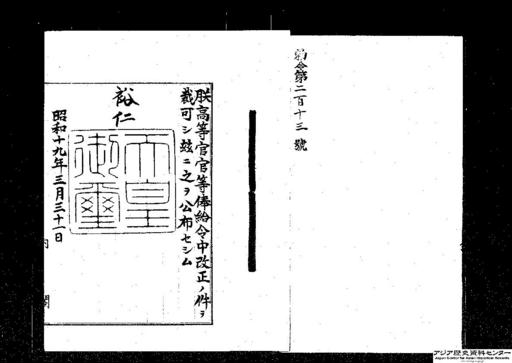 勅令第二百十三號
朕高等官官等俸給令中改正ノ件ヲ
裁可シ玆ニ之ヲ公布セシム
裕仁
天皇御璽
昭和十九年三月三十一日
内閣
アジア歴史資料センター
Japan Center for Asian Historical Records